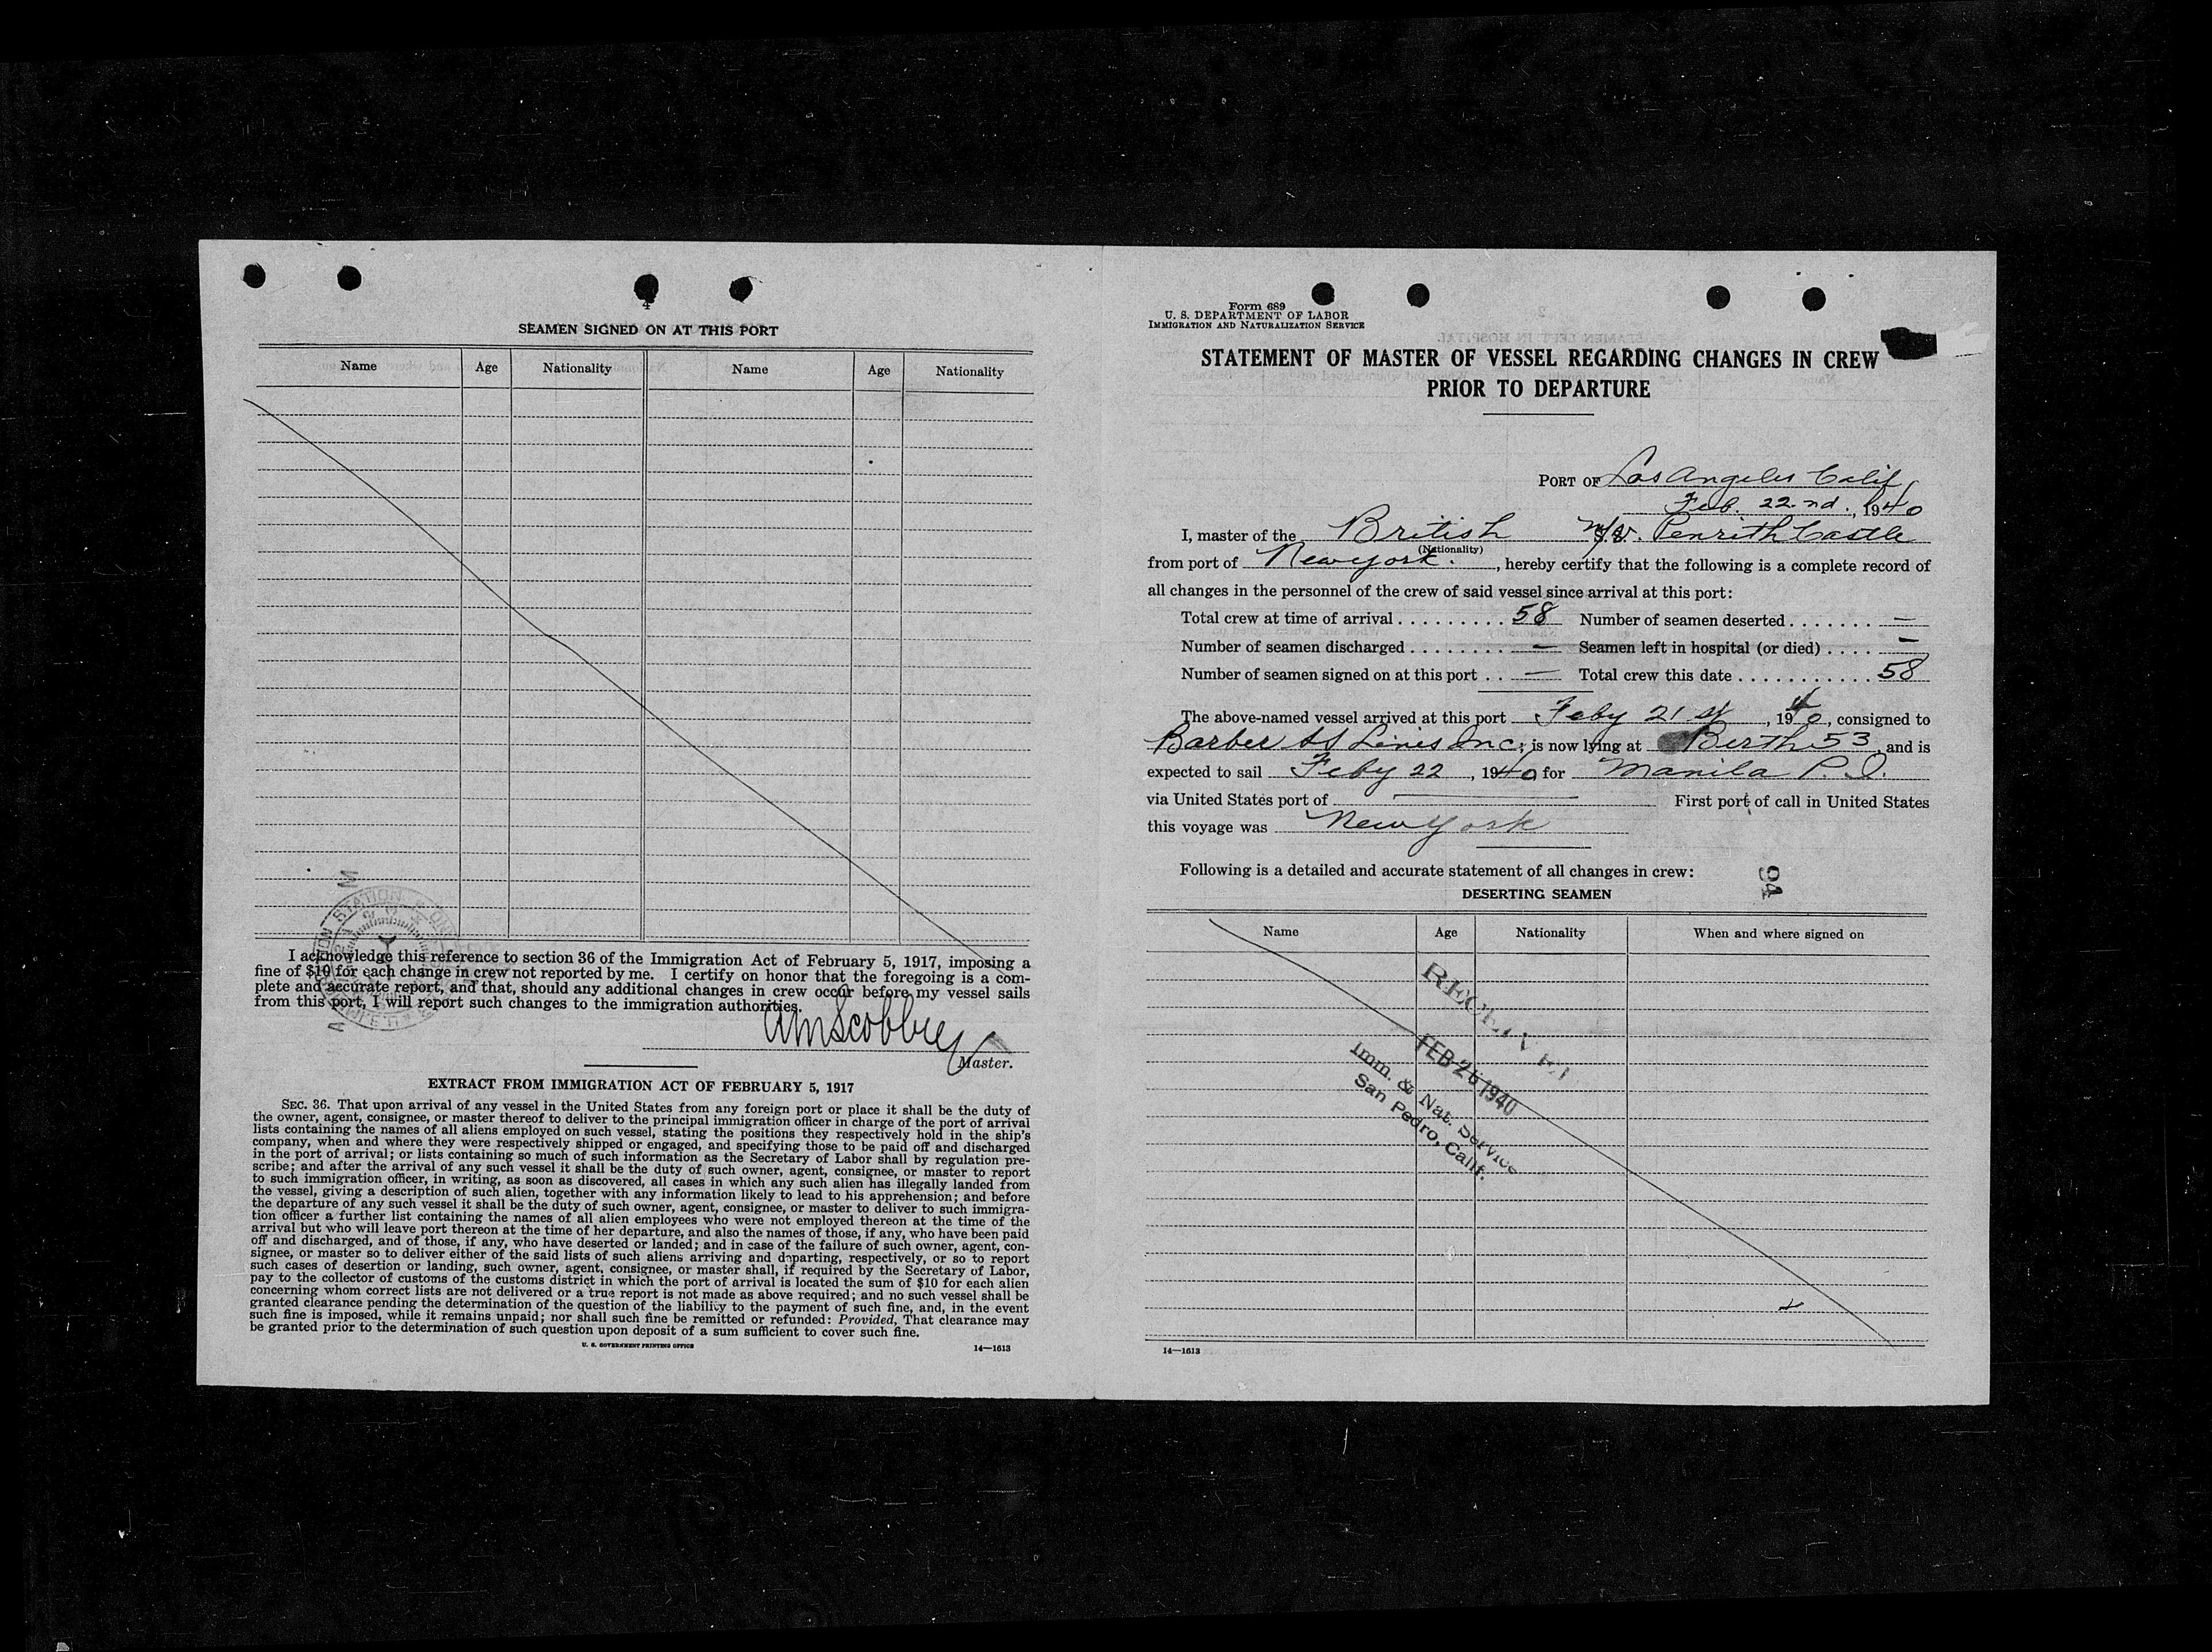 4
SEAMEN SIGNED ON AT THIS PORT
Name Age Nationality Name Age Nationality
I acknowledge this reference to section 36 of the Immigration Act of February 5, 1917, imposing a
fine of $10 for each change in crew not reported by me. I certify on honor that the foregoing is a com-
plete and accurate report, and that, should any additional changes in crew occur before my vessel sails
from this port, I will report such changes to the immigration authorities.
Master.
EXTRACT FROM IMMIGRATION ACT OF FEBRUARY 5, 1917
SEC. 36. That upon arrival of any vessel in the United States from any foreign port or place it shall be the duty of
the owner, agent, consignee, or master thereof to deliver to the principal immigration officer in charge of the port of arrival
lists containing the names of all aliens employed on such vessel, stating the positions they respectively hold in the ship's
company, when and where they were respectively shipped or engaged, and specifying those to be paid off and discharged
in the port of arrival; or lists containing so much of such information as the Secretary of Labor shall by regulation pre-
scribe; and after the arrival of any such vessel it shall be the duty of such owner, agent, consignee, or master to report
to such immigration officer, in writing, as soon as discovered, all cases in which any such alien has illegally landed from
the vessel, giving a description of such alien, together with any information likely to lead to his apprehension; and before
the departure of any such vessel it shall be the duty of such owner, agent, consignee, or master to deliver to such immigra-
tion officer a further list containing the names of all alien employees who were not employed thereon at the time of the
arrival but who will leave port thereon at the time of her departure, and also the names of those, if any, who have been paid
off and discharged, and of those, if any, who have deserted or landed; and in case of the failure of such owner, agent, con-
signee, or master so to deliver either of the said lists of such aliens arriving and departing, respectively, or so to report
such cases of desertion or landing, such owner, agent, consignee, or master shall, if required by the Secretary of Labor,
pay to the collector of customs of the customs district in which the port of arrival is located the sum of $10 for each alien
concerning whom correct lists are not delivered or a true report is not made as above required; and no such vessel shall be
granted clearance pending the determination of the question of the liability to the payment of such fine, and, in the event
such fine is imposed, while it remains unpaid; nor shall such fine be remitted or refunded: Provided, That clearance may
be granted prior to the determination of such question upon deposit of a sum sufficient to cover such fine.
U. S. GOVERNMENT PRINTING OFFICE 14—1613
Form 689
U. S. DEPARTMENT OF LABOR
IMMIGRATION AND NATURALIZATION SERVICE
STATEMENT OF MASTER OF VESSEL REGARDING CHANGES IN CREW
PRIOR TO DEPARTURE
PORT OF Los Angeles Calif
Feb. 22nd., 1940
I, master of the British M/V. Penrith Castle
(Nationality)
from port of New York., hereby certify that the following is a complete record of
all changes in the personnel of the crew of said vessel since arrival at this port:
Total crew at time of arrival ......... 58 Number of seamen deserted ....... —
Number of seamen discharged ........ — Seamen left in hospital (or died) .... —
Number of seamen signed on at this port .. — Total crew this date ........... 58
The above-named vessel arrived at this port Feby 21st, 1940, consigned to
Barber SS Lines Inc; is now lying at Berth 53, and is
expected to sail Feby 22, 1940 for Manila P.I.
via United States port of — First port of call in United States
this voyage was New York
Following is a detailed and accurate statement of all changes in crew:
94
DESERTING SEAMEN
Name Age Nationality When and where signed on
RECEIVED
FEB 26 1940
Imm. & Nat. Service
San Pedro, Calif.
14—1613